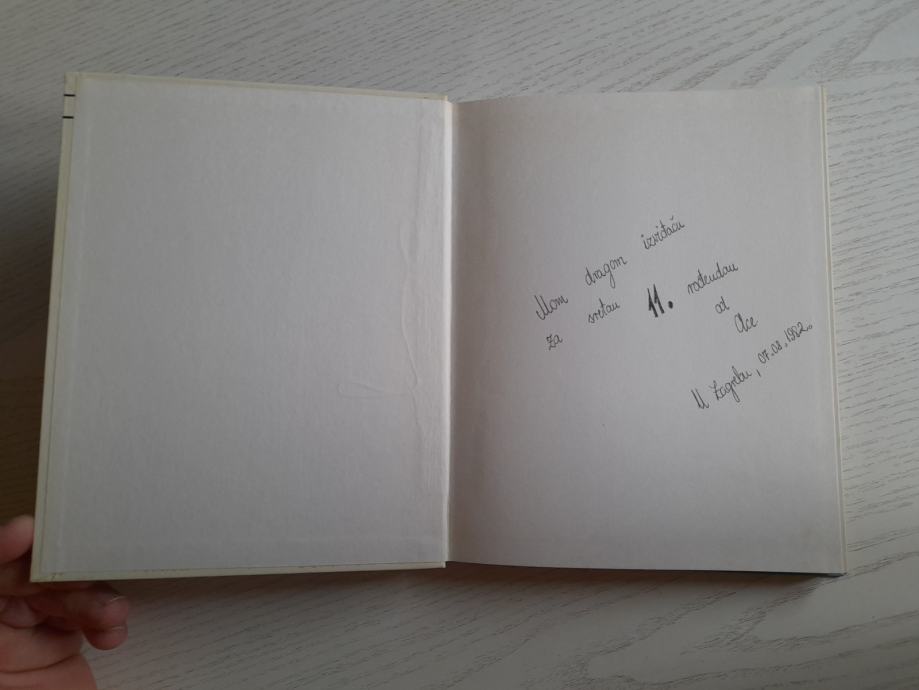 Mom dragom izviđaču
za sretan 11. rođendan
od
Ace
U Zagrebu, 07.03.1992.